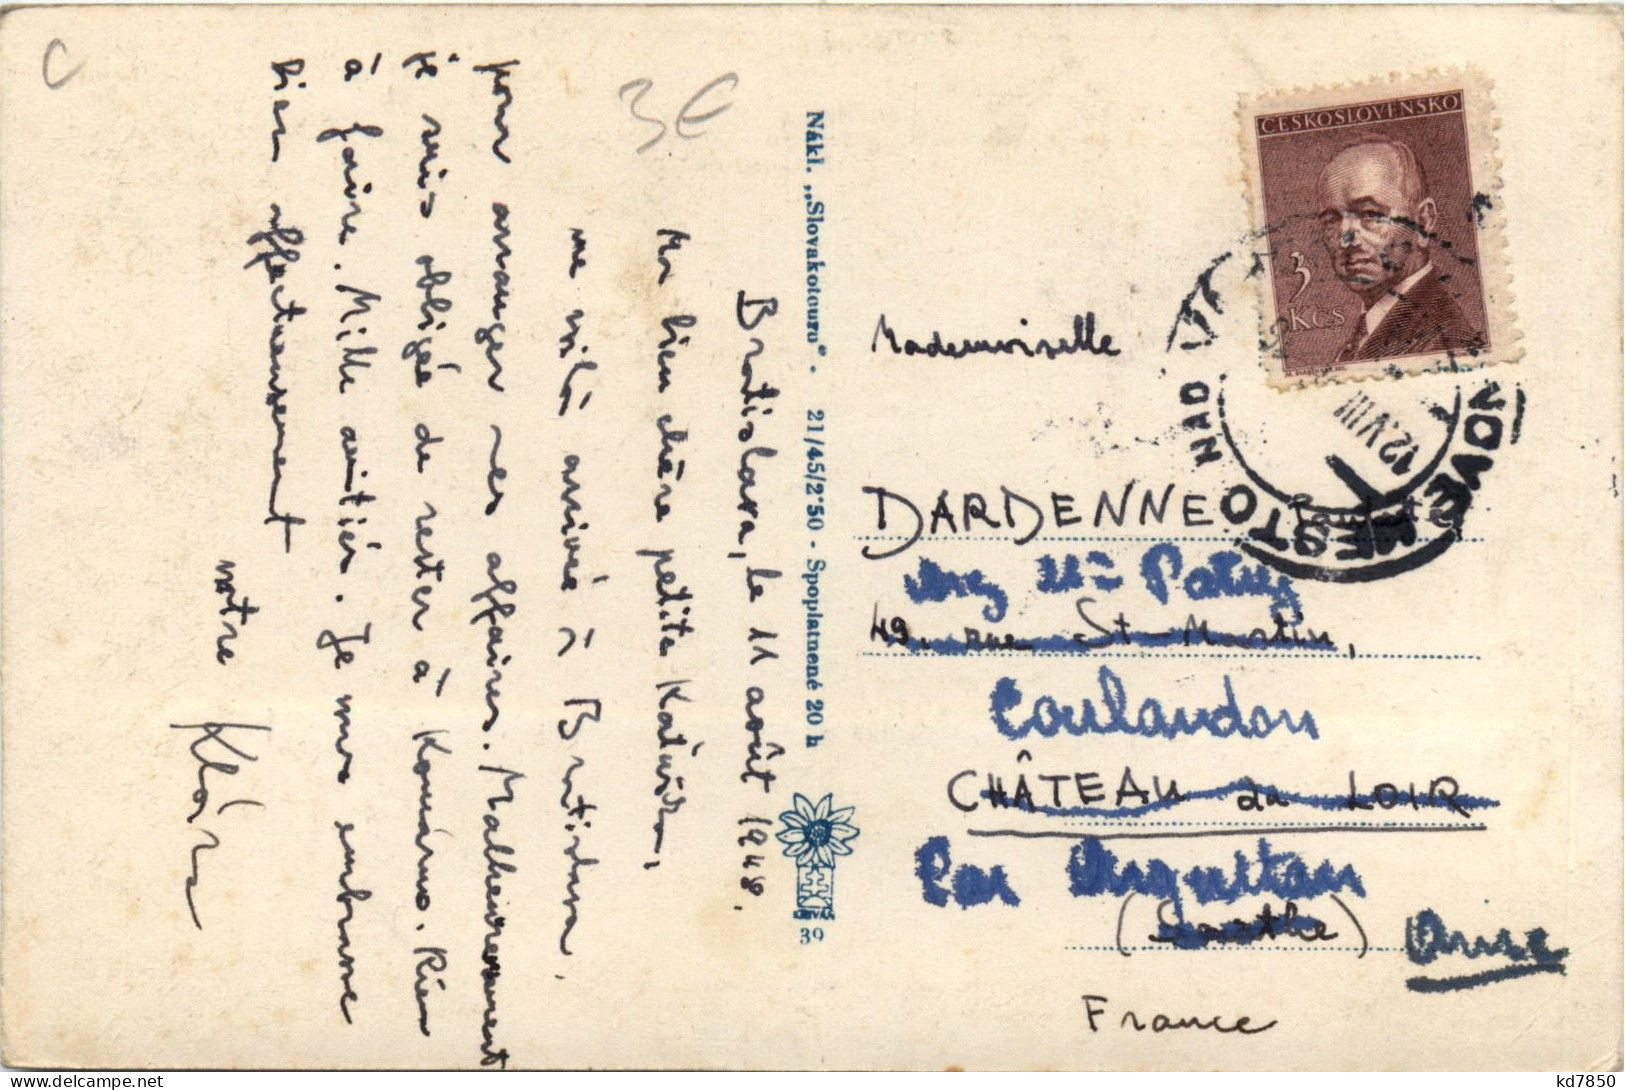 C
3€
Bratislava, le 11 août 1948.
Ma bien chère petite Katúška,
me voilà arrivé à Bratislava,
pour arranger mes affaires. Malheureusement
je suis obligé de rester à Komárno. Rien
à faire. Mille amitiés. Je vous embrasse
bien affectueusement
votre Klára
Nákl. „Slovakotouru" - 21/45/2'50 - Spoplatnené 20 h
39
ČESKOSLOVENSKO
3
KČS
NOVÉ MESTO NAD V
12.VIII
Mademoiselle
DARDENNE
chez Mme Patry
49, rue St-Martin,
Coulandon
CHÂTEAU du LOIR
Par Argentan
(Sarthe)
Orne
France
kd7850